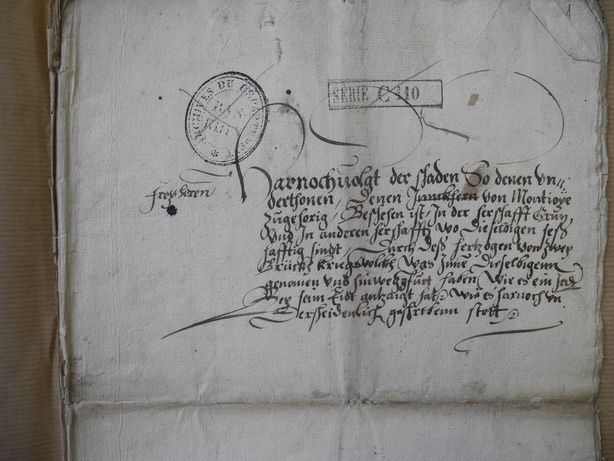 ARCHIVES DU
BAS-
RHIN
SERIE C 440
freyheren
Harnochuolgt der schaden So denen vn-
derthonen, Denen Junckhern von Montioye
Zugehörig, Beschehen ist, In der herschafft
Vnd In anderen herschafften wo Dieselbigen seß-
hafftig sindt, Durch deß hertzogen von Zwey
Brückh kriegsvolckh was Inne Dieselbigenn
genomen vnd hinweg haben Wie es ein Jed-
Ber seim Eidt antzaigt hat, wie es harnoch vn
Derscheidenlich geschribenn stott